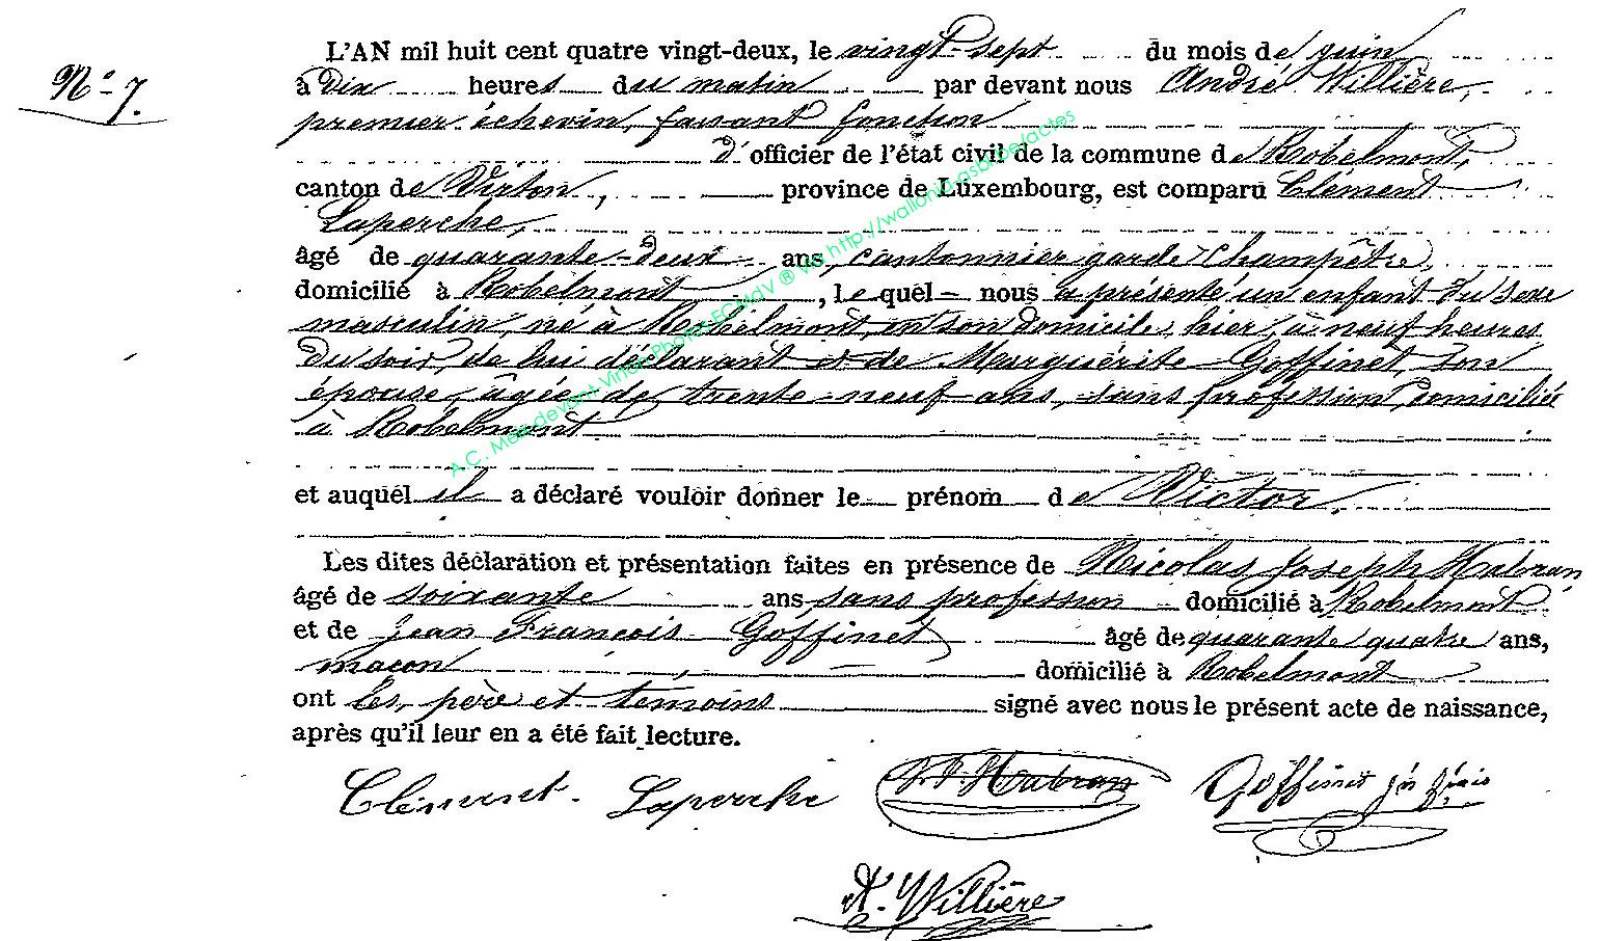 N° 7.
L'AN mil huit cent quatre vingt-deux, le vingt-sept du mois de juin
à dix heures du matin par devant nous André Willière,
premier échevin, faisant fonction
d'officier de l'état civil de la commune de Robelmont,
canton de Virton, province de Luxembourg, est comparu Clément
Laperche,
âgé de quarante-deux ans, cantonnier garde-champêtre,
domicilié à Robelmont, le quel nous a présenté un enfant du sexe
masculin, né à Robelmont, en son domicile, hier, à neuf heures
du soir, de lui déclarant et de Marguérite Goffinet, son
épouse, âgée de trente-neuf ans, sans profession, domiciliée
à Robelmont
et auquel il a déclaré vouloir donner le prénom de Victor.
Les dites déclaration et présentation faites en présence de Nicolas Joseph Habran
âgé de soixante ans sans profession domicilié à Robelmont
et de Jean François Goffinet âgé de quarante quatre ans,
maçon, domicilié à Robelmont
ont les, père et temoins signé avec nous le présent acte de naissance,
après qu'il leur en a été fait lecture.
Clément Laperche N. J. Habran Goffinet jn fçois
A. Willière
A.C. Meix-devant-Virton Photos EGMdV ® via http://wallonia-asbl.be/actes